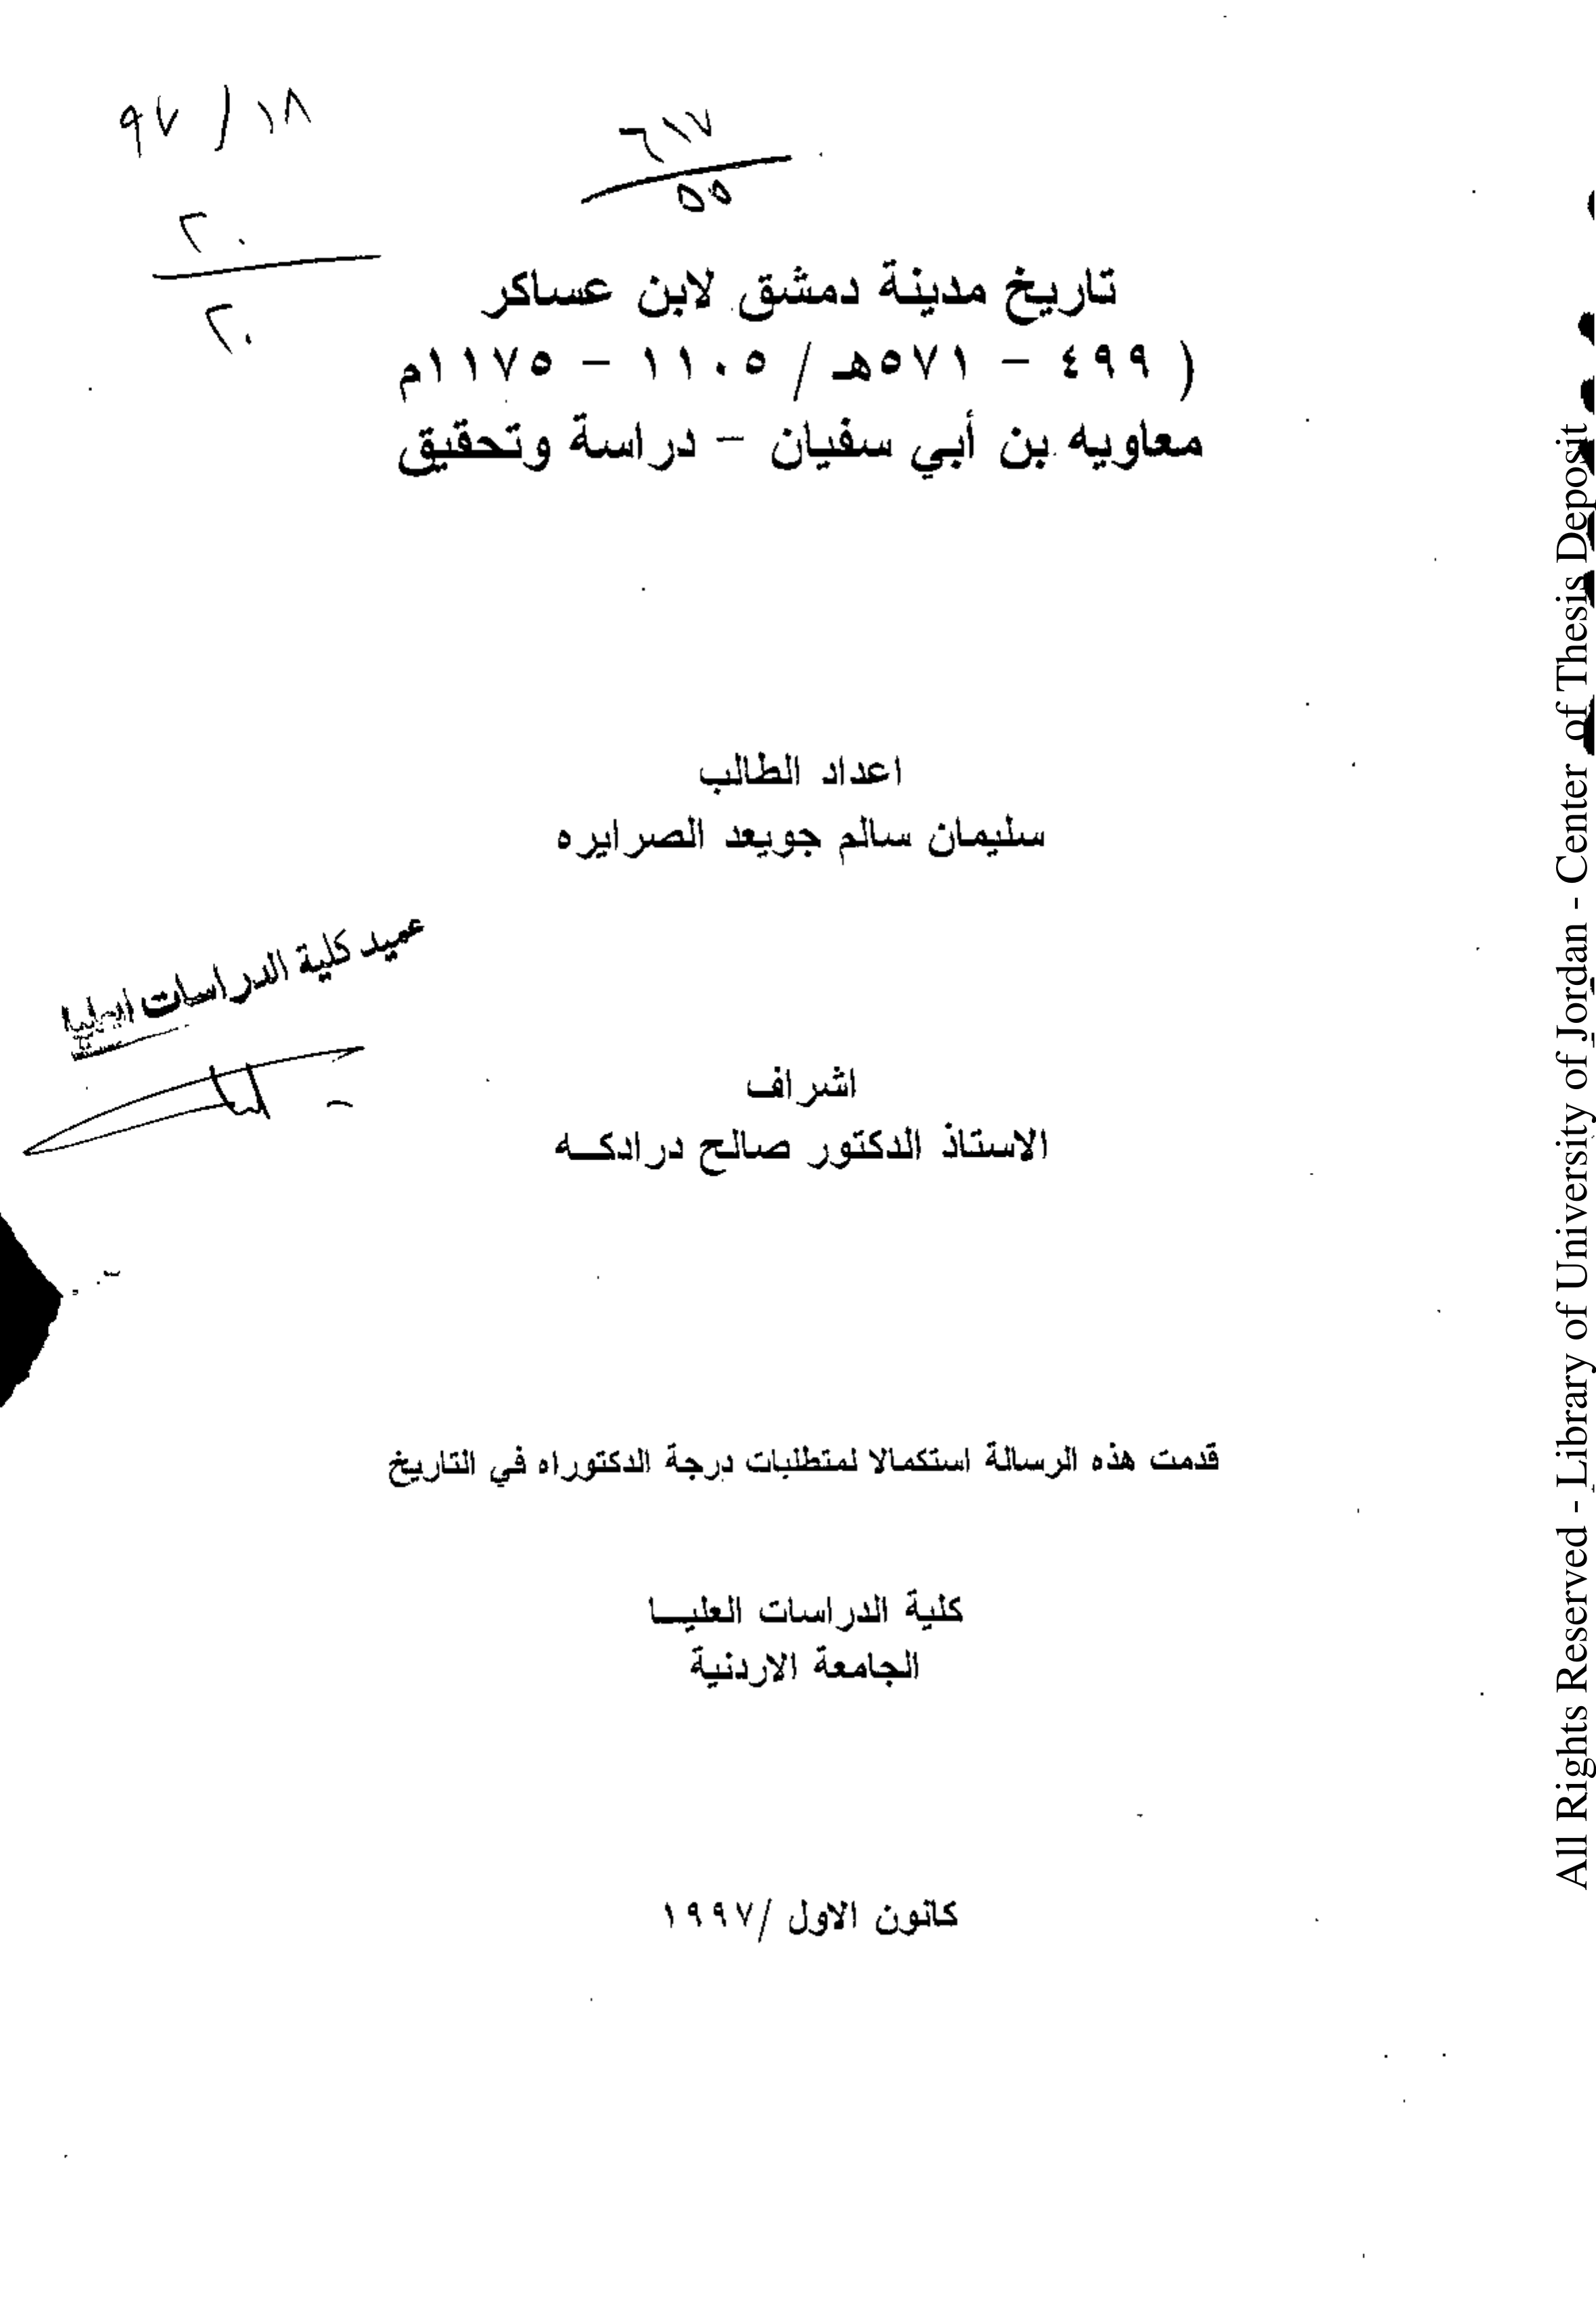 ٩٧ / ١٨
٦١٧
٥٥
٢٠
٢٠
تاريخ مدينة دمشق لابن عساكر
( ٤٩٩ - ٥٧١هـ / ١١٠٥ - ١١٧٥م
معاويه بن أبي سفيان - دراسة وتحقيق
اعداد الطالب
سليمان سالم جويعد الصرايره
عميد كلية الدراسات العليا
اشراف
الاستاذ الدكتور صالح درادكـــه
قدمت هذه الرسالة استكمالا لمتطلبات درجة الدكتوراه في التاريخ
كلية الدراسات العليـــا
الجامعة الاردنية
كانون الاول /١٩٩٧
All Rights Reserved - Library of University of Jordan - Center of Thesis Deposit